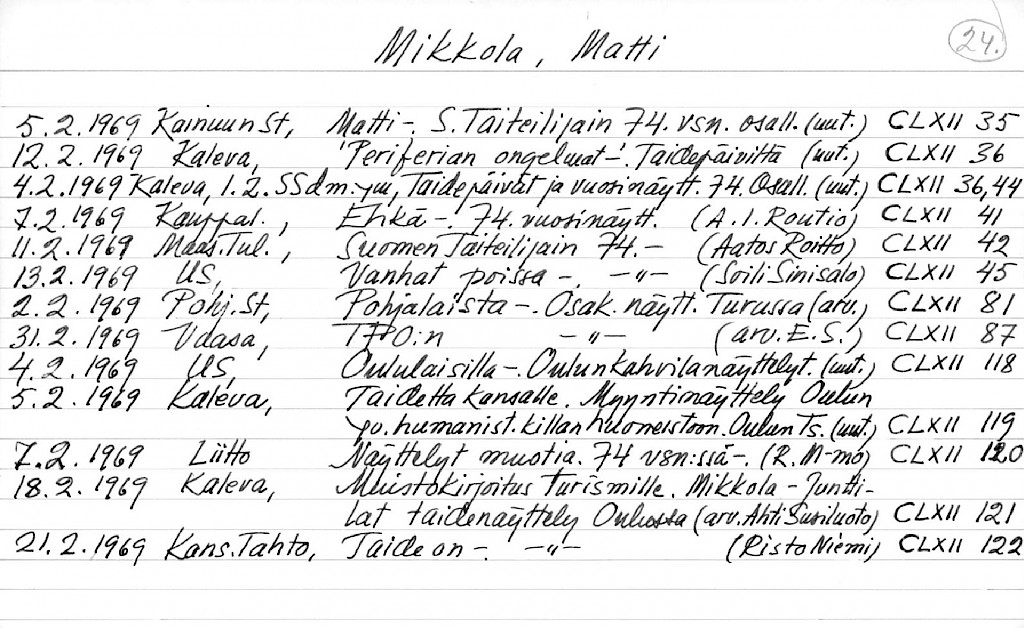 24.
Mikkola, Matti
5.2.1969 Kainuun St, Matti-. S. Taiteilijain 74. vsn. osall. (uut.) CLXII 35
12.2.1969 Kaleva, 'Periferian ongelmat-'. Taidepäiviltä (uut.) CLXII 36
4.2.1969 Kaleva, 1.2. SSdm: Taidepäivät ja vuosinäytt. 74. Osall. (uut.) CLXII 36,44
7.2.1969 Kauppal., Ehkä-. 74. vuosinäytt. (A.I. Routio) CLXII 41
11.2.1969 Maas.Tul., Suomen Taiteilijain 74.- (Aatos Roitto) CLXII 42
13.2.1969 US, Vanhat poissa -. -"- (Soili Sinisalo) CLXII 45
2.2.1969 Pohj.St, Pohjalaista -. Osak. näytt. Turussa (arv.) CLXII 81
31.2.1969 Vaasa, TPO:n -"- (arv. E.S.) CLXII 87
4.2.1969 US, Oululaisilla -. Oulun kahvilanäyttelyt. (uut.) CLXII 118
5.2.1969 Kaleva, Taidetta kansalle. Myyntinäyttely Oulun
yo. humanist. killan huoneistoon. Oulun Ts. (uut.) CLXII 119
7.2.1969 Liitto Näyttelyt muotia. 74 vsn:ssä-. (R. M-mo) CLXII 120
18.2.1969 Kaleva, Muistokirjoitus turismille. Mikkola - Juntti-
lat taidenäyttely Oulussa (arv. Ahti Susiluoto) CLXII 121
21.2.1969 Kans.Tahto, Taide on -. -"- (Risto Niemi) CLXII 122